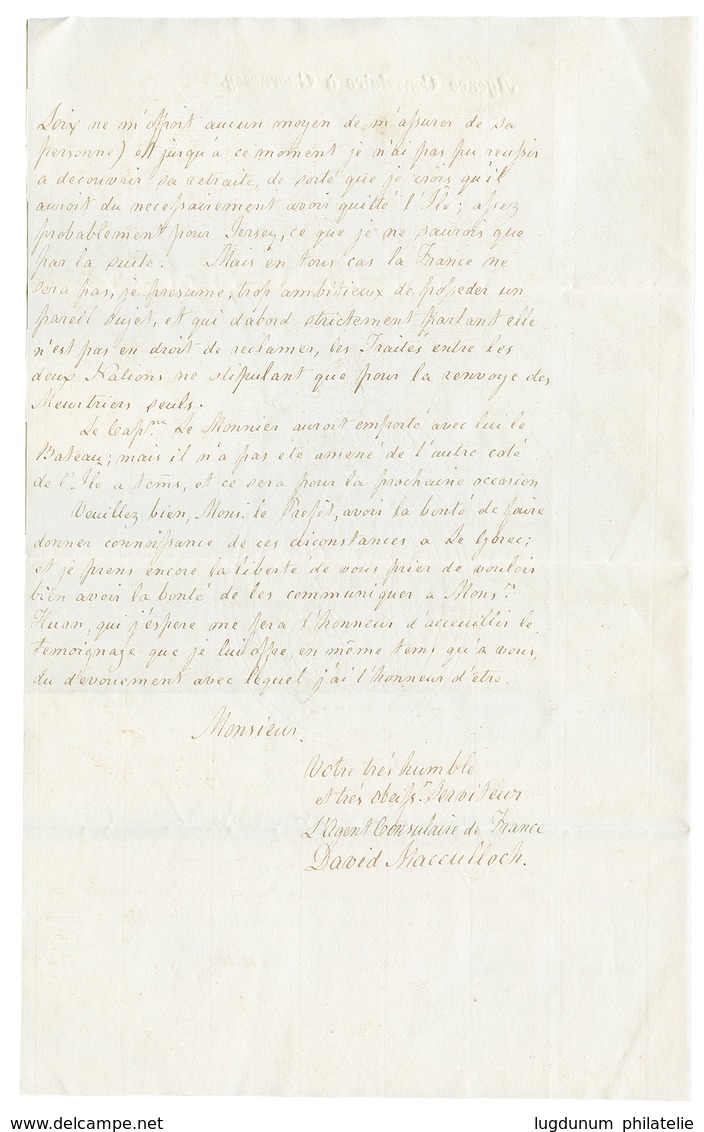 Loix ne m'offroit aucun moyen de m'assurer de sa
personne) et jusqu'à ce moment je n'ai pas pu reussir
a decouvrir sa retraite, de sorte que je crois qu'il
auroit du necessairement avoir quitté l'Ile; assez
probablement pour Jersey, ce que je ne saurois que
par la suite. Mais en tous cas la France ne
sera pas, je presume, trop ambitieux de posseder un
pareil sujet, et qui d'abord strictement parlant elle
n'est pas en droit de reclamer, les Traités entre les
deux Nations ne stipulant que pour la renvoye des
Meurtriers seuls.
Le Capne. Le Monnier auroit emporté avec lui le
Bateau; mais il n'a pas eté amené de l'autre coté
de l'Ile a tems, et ce sera pour la prochaine occasion
Veuillez bien, Mons. le Prefèt, avoir la bonté de faire
donner connoissance de ces circonstances a Le Gorec;
et je prens encore la liberté de vous prier de vouloir
bien avoir la bonté de les communiquer a Monsr.
Huan, qui j'éspere me fera l'honneur d'accueillir le
temoignage que je lui offre, en même tems qu'a vous,
du dévouement avec lequel j'ai l'honneur d'etre.
Monsieur
Votre trés humble
et trés obeisst. Serviteur
L'Agent Consulaire de France
David Macculloch.
www.delcampe.net
lugdunum philatelie